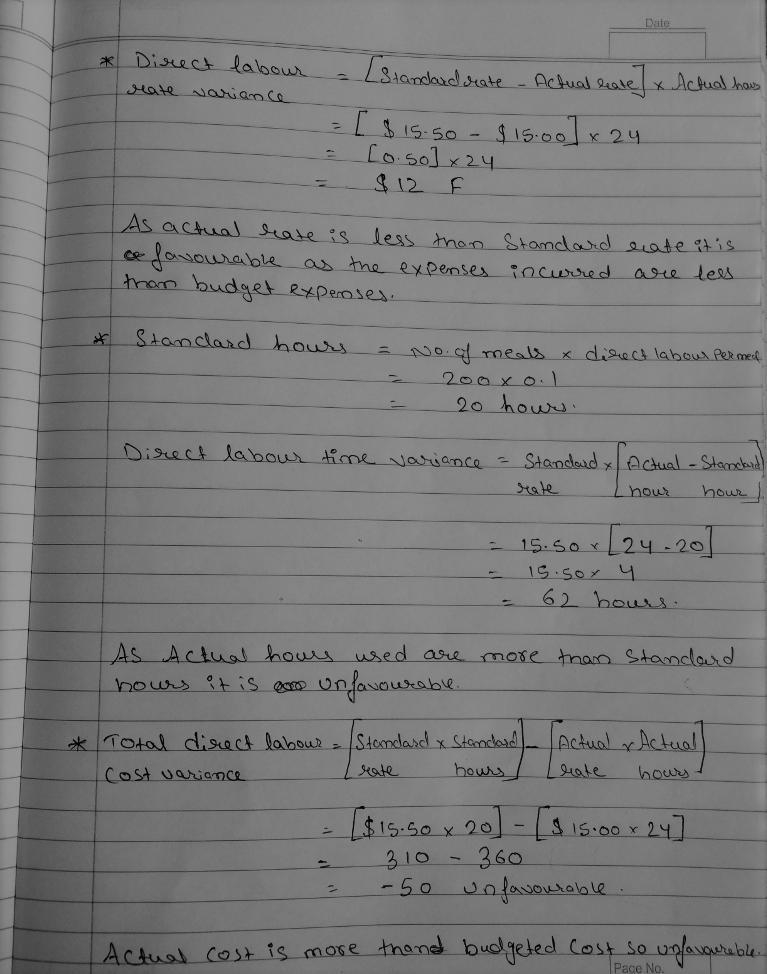 Date
* Direct labour = [Standard rate - Actual rate] x Actual hours
rate variance
= [ $ 15.50 - $ 15.00] x 24
= [0.50] x 24
= $ 12 F
As actual rate is less than Standard rate it is
favourable as the expenses incurred are less
than budget expenses.
* Standard hours = No. of meals x direct labour Per meal
= 200 x 0.1
= 20 hours.
Direct labour time variance = Standard x [Actual - Standard]
rate hour hour
= 15.50 x [24 - 20]
= 15.50 x 4
= 62 hours.
As Actual hours used are more than Standard
hours it is unfavourable.
* Total direct labour = [Standard x Standard] - [Actual x Actual]
Cost variance rate hours rate hours
= [$15.50 x 20] - [$ 15.00 x 24]
= 310 - 360
= -50 unfavourable.
Actual cost is more than budgeted cost so unfavourable.
Page No.